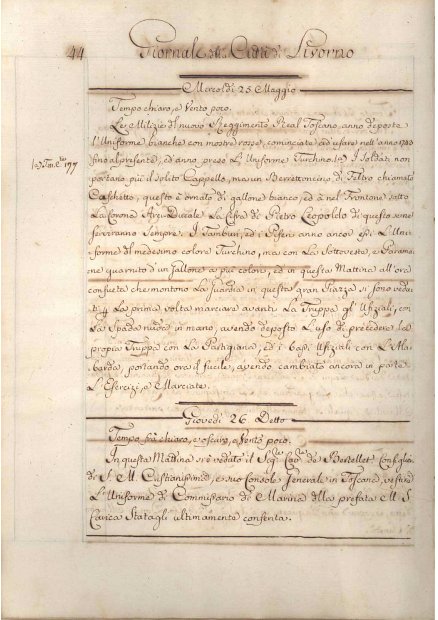 44 Giornale della Città di Livorno
Mercoledì 25 Maggio
Tempo chiaro, e Vento poco.
Le Milizie del nuovo Reggimento Real Toscano, anno deposte
l'Uniforme bianche con mostre rosse, cominciate ad usare nell'anno
fino al presente, ed anno preso L'Uniforme Turchino. I Soldati non
portano più il solito Cappello, ma un Berrettoncino di Feltro chiamato
Caschetto, questo è ornato di gallone bianco, ed à nel Frontone sotto
La Corona Arci-Ducale La Cifra di Pietro Leopoldo di questo sene
serviranno Sempre. I Tamburi, ed i Piferi anno ancor essi L'Uni-
forme del medesimo colore Turchino, ma con La Sottoveste, e Paramo-
ne guarnito d'un gallone a più colori, ed in questa Mattina all'ora
consueta che montono La Guardia in questa gran Piazza si sono vedu-
ti La prima volta marciare avanti La Truppa gl'Ufiziali, con
La Spada nuda in mano, avendo deposto L'uso di precedere la
propia Truppa con La Partigiana, ed i Bassi Ufiziali con L'Ala-
barda, portando ora il fucile, avendo cambiato ancora in parte
L'Esercizi, e Marciate.
Giovedì 26 Detto
Tempo frà chiaro, e oscuro, e Vento poco.
In questa Mattina si è veduto il Sig.re Cav.re de Bertellet Consiglie
di S. M. Cristianissima, e suo Console Generale in Toscana, vestire
L'Uniforme di Commissario di Marina della prefata M. S.
Carica Statagli ultimamente conferita.